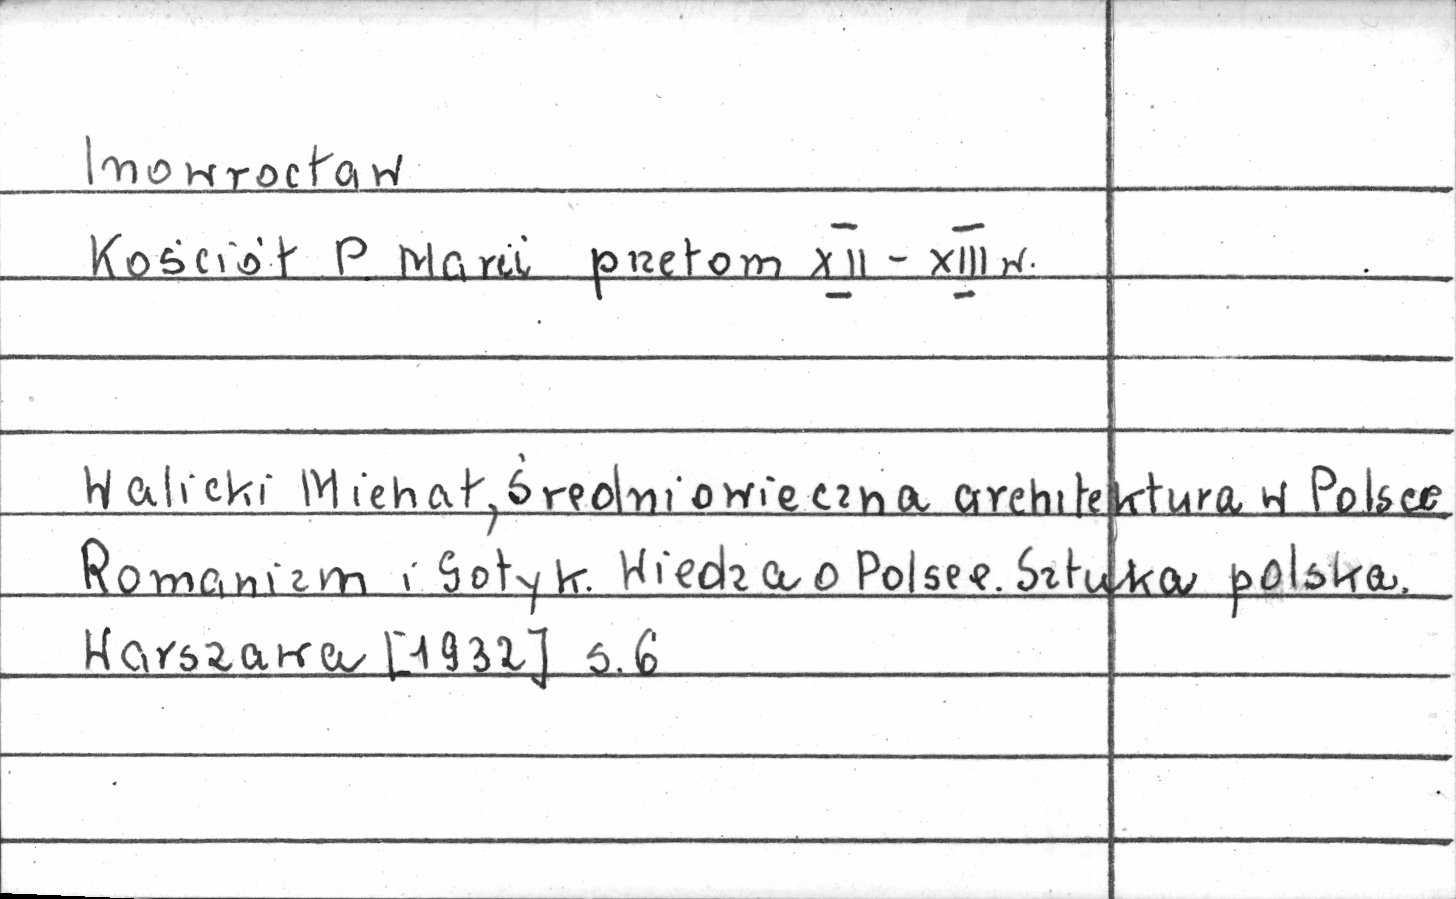 Inowrocław
Kościół P. Marii przełom XII - XIII w.
Walicki Michał, Średniowieczna architektura w Polsce
Romanizm i Gotyk. Wiedza o Polsce. Sztuka polska.
Warszawa [1932] s.6